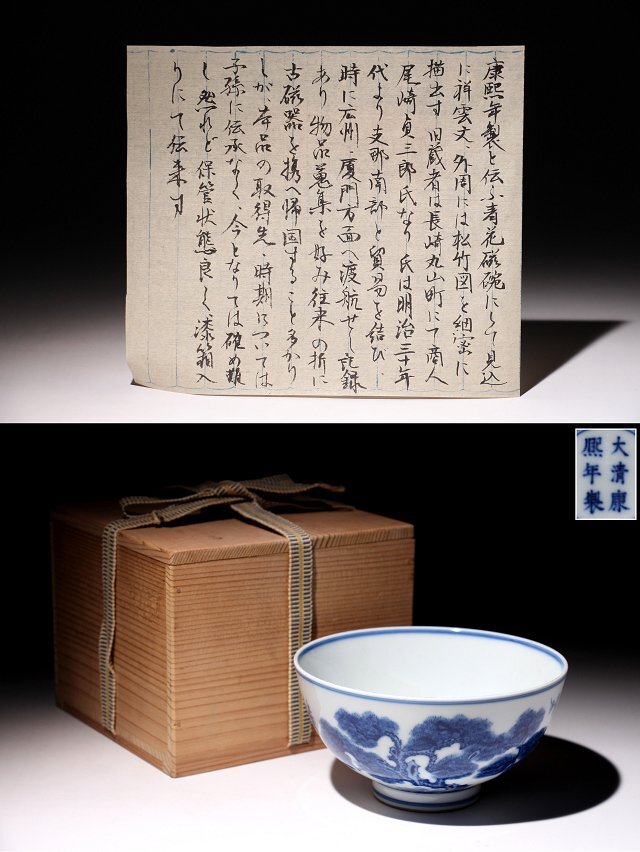 康熙年製と伝ふ青花磁碗にして見込
に祥雲文、外周には松竹図を細密に
描出す 旧蔵者は長崎丸山町にて商人
尾崎貞三郎氏なり 氏は明治三十年
代より支那南部と貿易を結び、
時に広州・厦門方面へ渡航せし記録
あり 物品蒐集を好み往来の折に
古磁器を携へ帰国すること多かり
しが、本品の取得先・時期については
子孫に伝承なく 今となりては確め難
し 然れど保管状態良く、漆箱入
りにて伝来す
大清康
熙年製